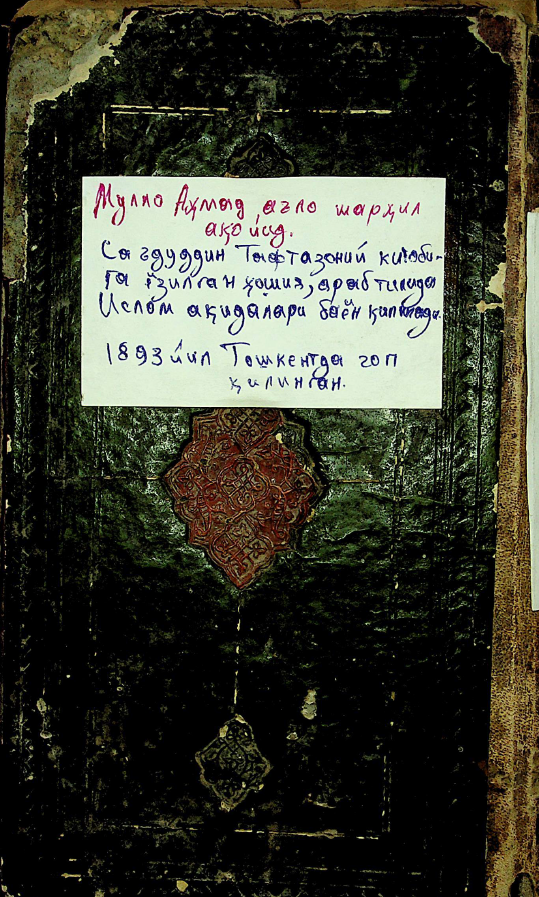 Мулло Аҳмад аъло шарҳил
ақойид.
Саъдуддин Тафтазоний китоби-
га ёзилган ҳошия, араб тилида
Ислом ақидалари баён қилинади.
1893 йил Тошкентда чоп
қилинган.